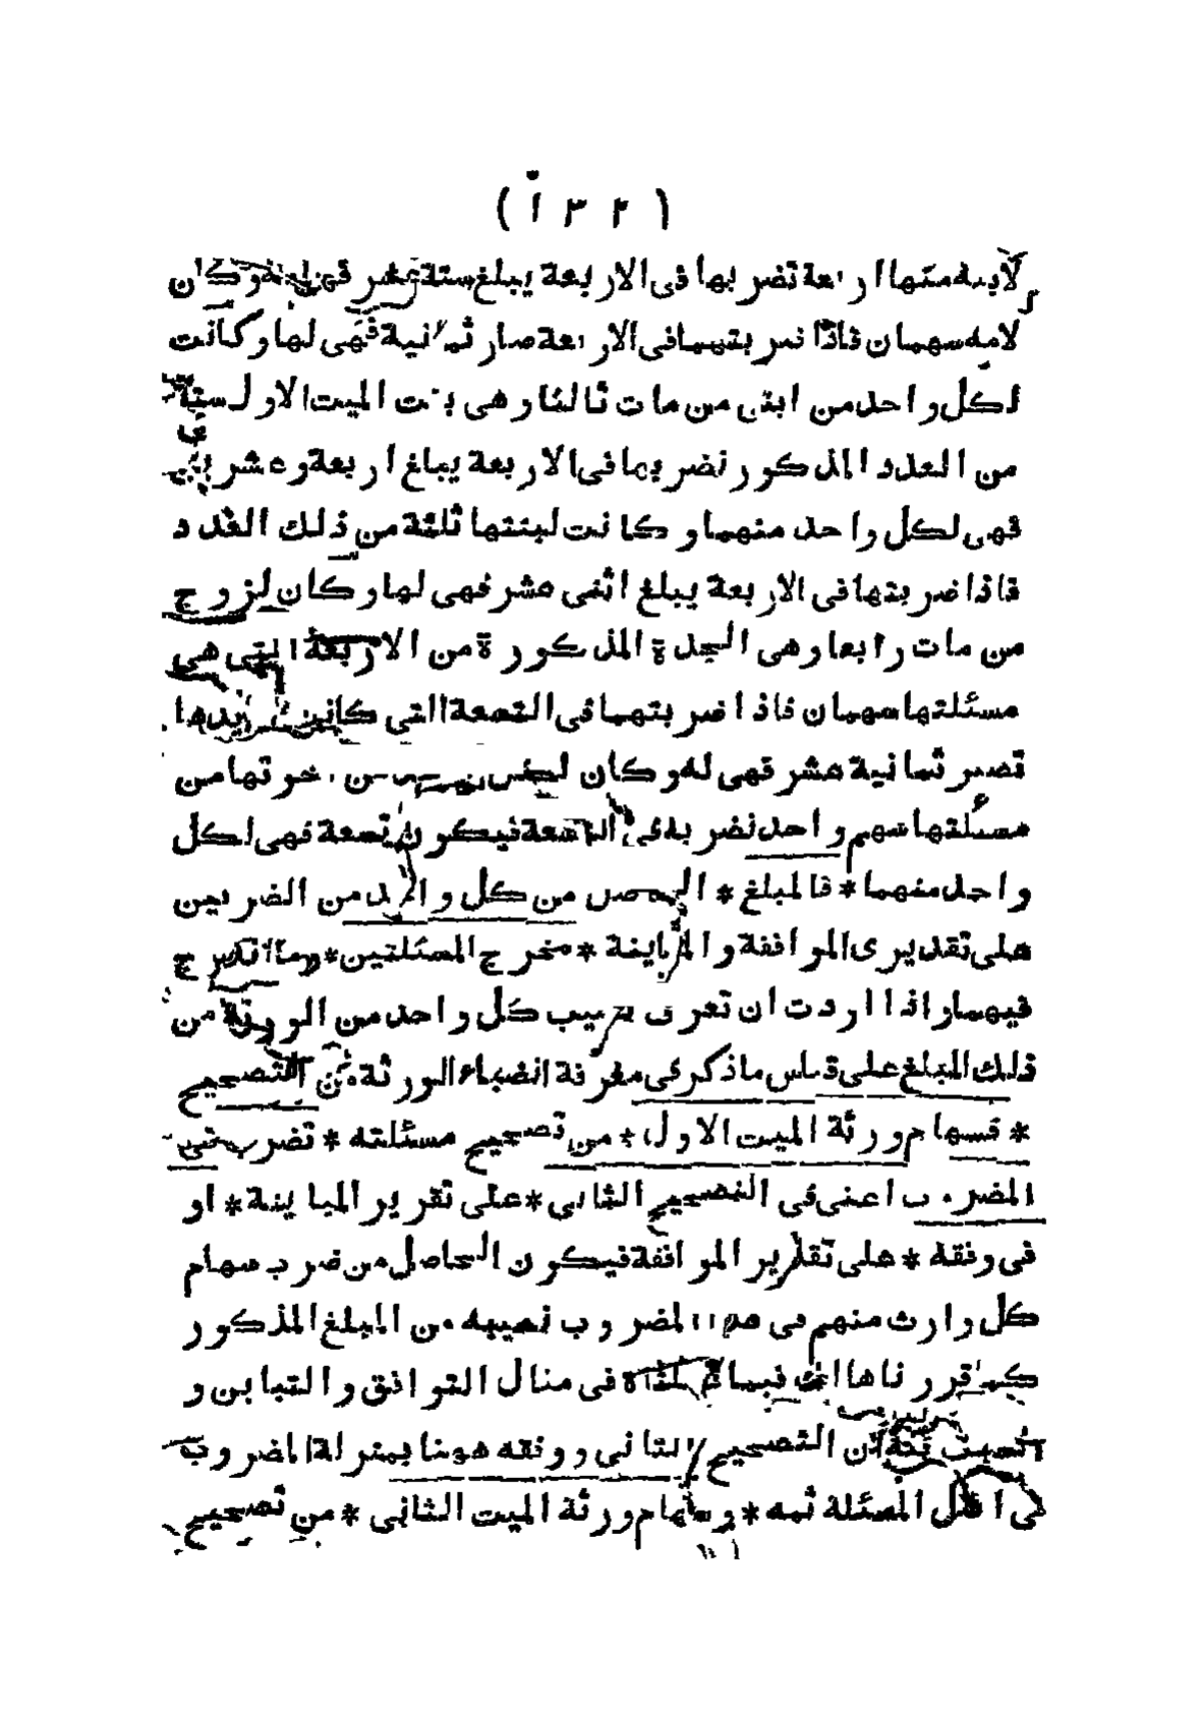 ( ١٣٢ )
لابيه منها اربعة تضربها فى الاربعة يبلغ ستة عشر فهى له وكان
لامه سهمان فاذا ضربتهما فى الاربعة صار ثمانية فهى لها وكانت
لكل واحد من ابنى من مات ثالثا وهى بنت الميت الاول ستة
من العدد المذكور نضربها فى الاربعة يبلغ اربعة وعشرين
فهى لكل واحد منهما وكانت لبنتها ثلثة من ذلك العدد
فاذا ضربتها فى الاربعة يبلغ اثنى عشر فهى لها وكان لزوج
من مات رابعا وهى الجدة المذكورة من الاربعة التى هى
مسئلتها سهمان فاذا ضربتهما فى التسعة التى كانت بيدها
تصير ثمانية عشر فهى له وكان لكل من اخوتها من
مسئلتها سهم واحد نضربه فى التسعة فيكون تسعة فهى لكل
واحد منهما * فالمبلغ * الحاصل من كل واحد من الضربين
على تقديرى الموافقة والمباينة * مخرج المسئلتين * وما انكسر
فيهما واذا اردت ان تعرف نصيب كل واحد من الورثة من
ذلك المبلغ على قياس ما ذكر فى معرفة انصباء الورثة من التصحيح
* فسهام ورثة الميت الاول * من تصحيح مسئلته * تضرب فى
المضروب اعنى فى التصحيح الثانى * على تقرير المباينة * او
فى وفقه * على تقدير الموافقة فيكون الحاصل من ضرب سهام
كل وارث منهم فى هذا المضروب نصيبه من المبلغ المذكور
كما قررناها لك فيما فى مثال التوافق والتباين و
ان التصحيح الثانى ووفقه ههنا بمنزلة المضروب
فى اصل المسئلة ثمه * وسهام ورثة الميت الثانى * من تصحيح